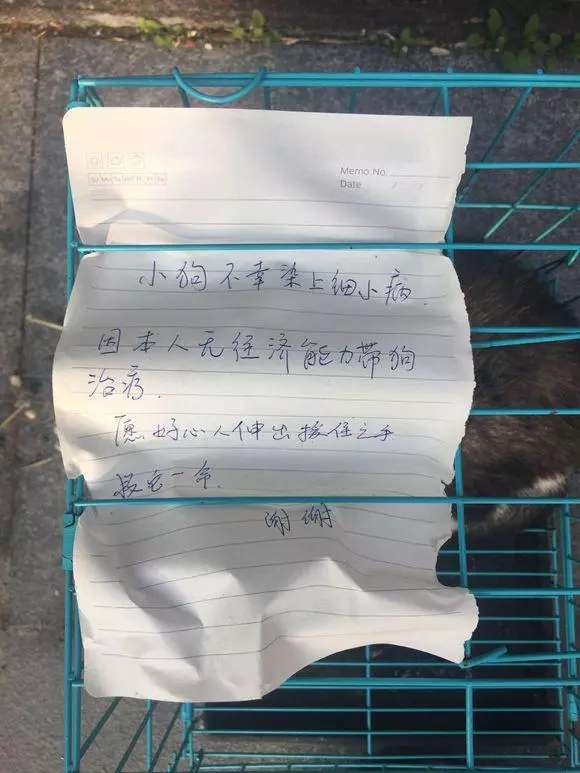 Su Mo Tu We Th Fr Sa
Memo No.
Date / /
小狗不幸染上细小病.
因本人无经济能力带狗
治疗.
愿好心人伸出援住之手
救它一命.
谢谢